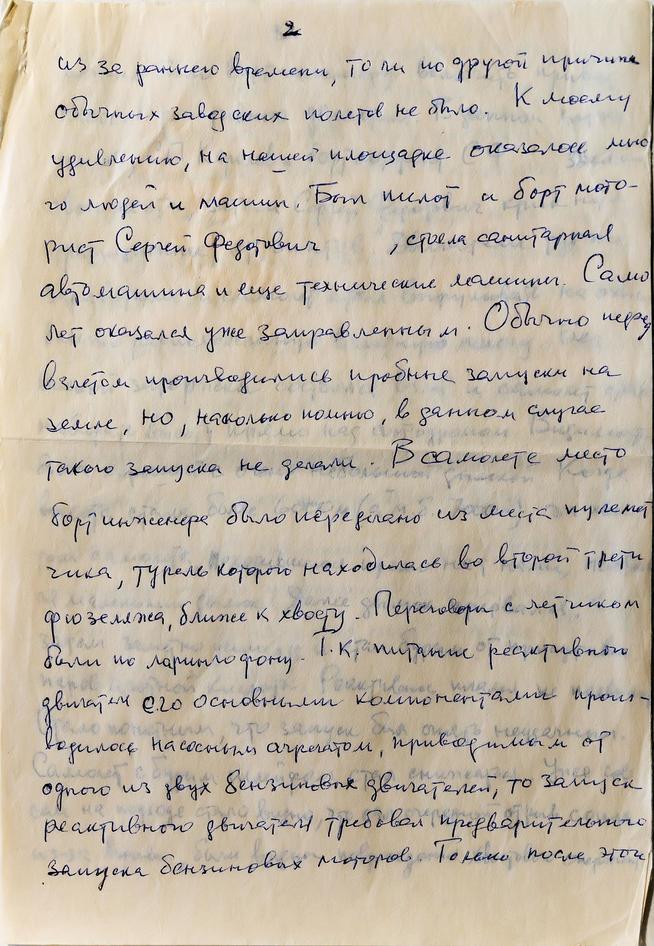 2
из за раннего времени, то ли по другой причине
обычных заводских полетов не было. К моему
удивлению, на нашей площадке оказалось мно
го людей и машин. Был пилот и борт мото-
рист Сергей Федотович , стояла санитарная
автомашина и еще технические машины. Само
лет оказался уже заправленным. Обычно перед
взлетом производились пробные запуски на
земле, но, насколько помню, в данном случае
такого запуска не делали. В самолете место
бортинженера было переделано из места пулемет
чика, турель которого находилась во второй трети
фюзеляжа, ближе к хвосту. Переговоры с летчиком
были по ларингофону. Т.К. питание реактивного
двигателя его основными компонентами произ-
водилось насосным агрегатом, приводимым от
одного из двух бензиновых двигателей, то запуск
реактивного двигателя требовал предварительного
запуска бензиновых моторов. Только после этого